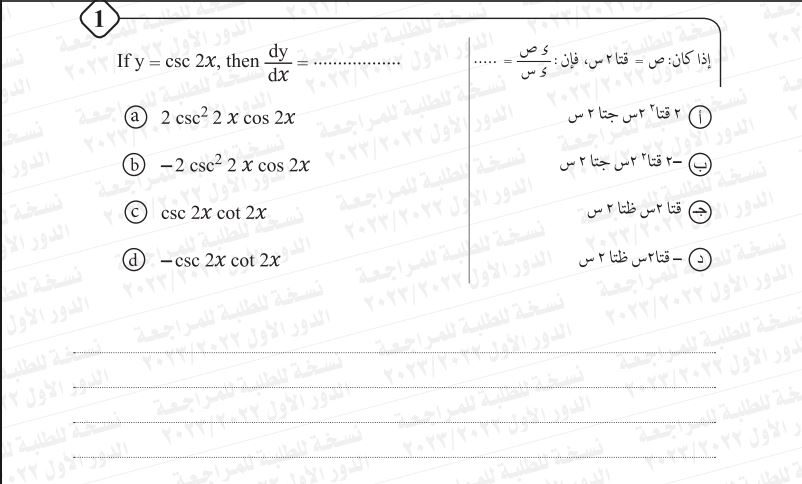 1
If y = csc 2x, then dy/dx = ..................
إذا كان: ص = قتا ٢ س، فإن: ء ص/ء س = .....
a 2 csc² 2 x cos 2x
أ ٢ قتا٢ ٢س جتا ٢ س
b −2 csc² 2 x cos 2x
ب −٢ قتا٢ ٢س جتا ٢ س
c csc 2x cot 2x
جـ قتا ٢س ظتا ٢ س
d −csc 2x cot 2x
د − قتا٢س ظتا ٢ س
نسخة للطلبة للمراجعة
الدور الأول ٢٠٢٣/٢٠٢٢